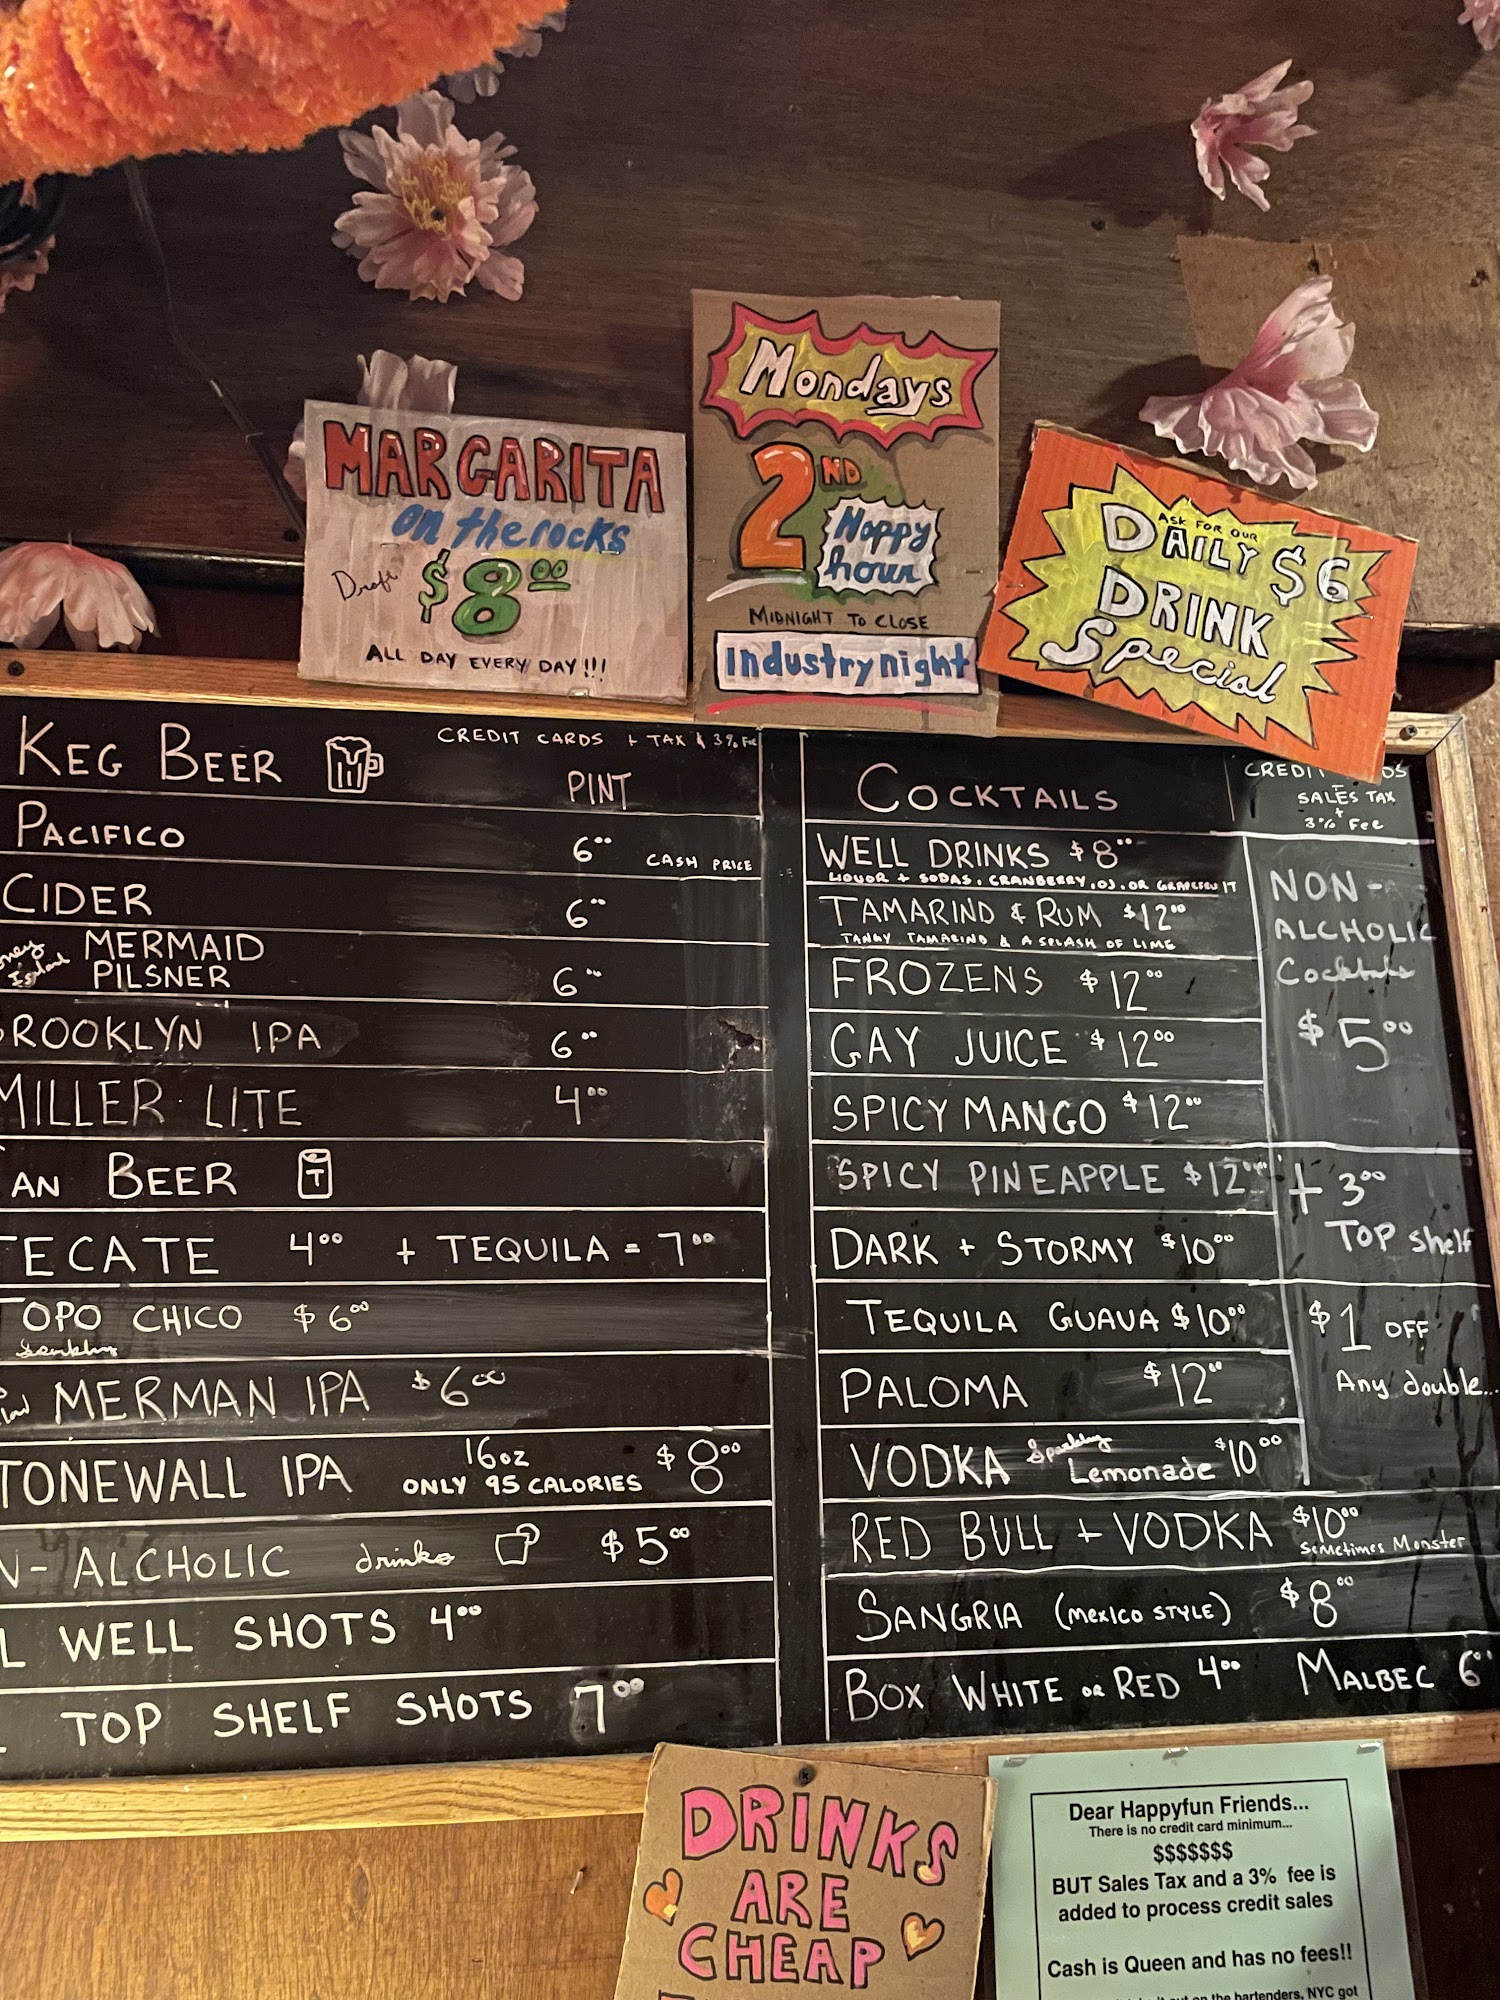 MARGARITA
on the rocks
Draft $8.00
ALL DAY EVERY DAY!!!
Mondays
2ND
Happy
hour
MIDNIGHT TO CLOSE
industry night
ASK FOR OUR
DAILY $6
DRINK
Special
KEG BEER
CREDIT CARDS + TAX & 3% Fee
PINT
PACIFICO 6.00 CASH PRICE
CIDER 6.00
MERMAID
PILSNER 6.00
ROOKLYN IPA 6.00
MILLER LITE 4.00
AN BEER
TECATE 4.00 + TEQUILA = 7.00
TOPO CHICO $6.00
MERMAN IPA $6.00
TONEWALL IPA 16oz $8.00
ONLY 95 CALORIES
N-ALCHOLIC drinks $5.00
L WELL SHOTS 4.00
TOP SHELF SHOTS 7.00
COCKTAILS
WELL DRINKS $8.00
LIQUOR + SODAS, CRANBERRY, OJ, OR GRAPEFRUIT
TAMARIND & RUM $12.00
TANGY TAMARIND & A SPLASH OF LIME
FROZENS $12.00
GAY JUICE $12.00
SPICY MANGO $12.00
SPICY PINEAPPLE $12.00
DARK + STORMY $10.00
TEQUILA GUAVA $10.00
PALOMA $12.00
VODKA Sparkling Lemonade $10.00
RED BULL + VODKA $10.00
Sometimes Monster
SANGRIA (MEXICO STYLE) $8.00
BOX WHITE OR RED 4.00 MALBEC 6.00
SALES TAX
+
3% Fee
NON-
ALCHOLIC
Cocktails
$5.00
+ 3.00
TOP Shelf
$1 OFF
Any double...
DRINKS
ARE
CHEAP
Dear Happyfun Friends...
There is no credit card minimum...
$$$$$$$
BUT Sales Tax and a 3% fee is
added to process credit sales
Cash is Queen and has no fees!!
on the bartenders, NYC got